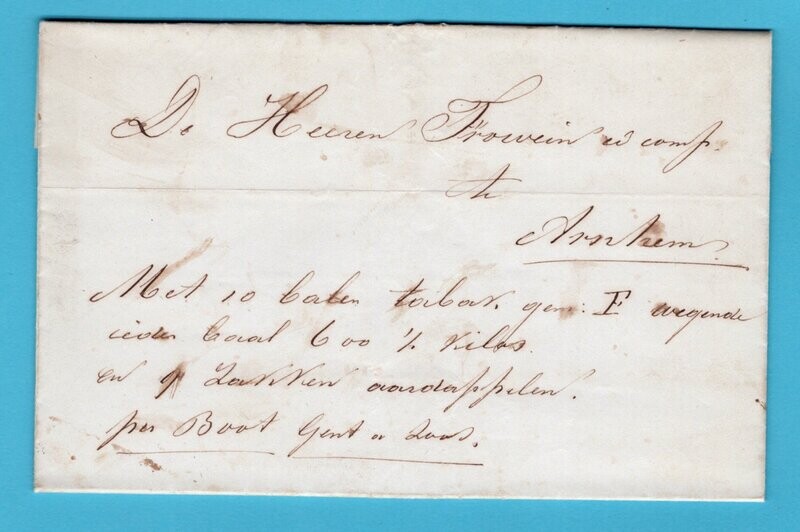 De Heeren Frowein & comp.
te
Arnhem
Met 10 balen tabak, gem: F wegende
ieder baal 600 ½ kilos
en 9 Zakken aardappelen.
per Boot Gent a Zoos.